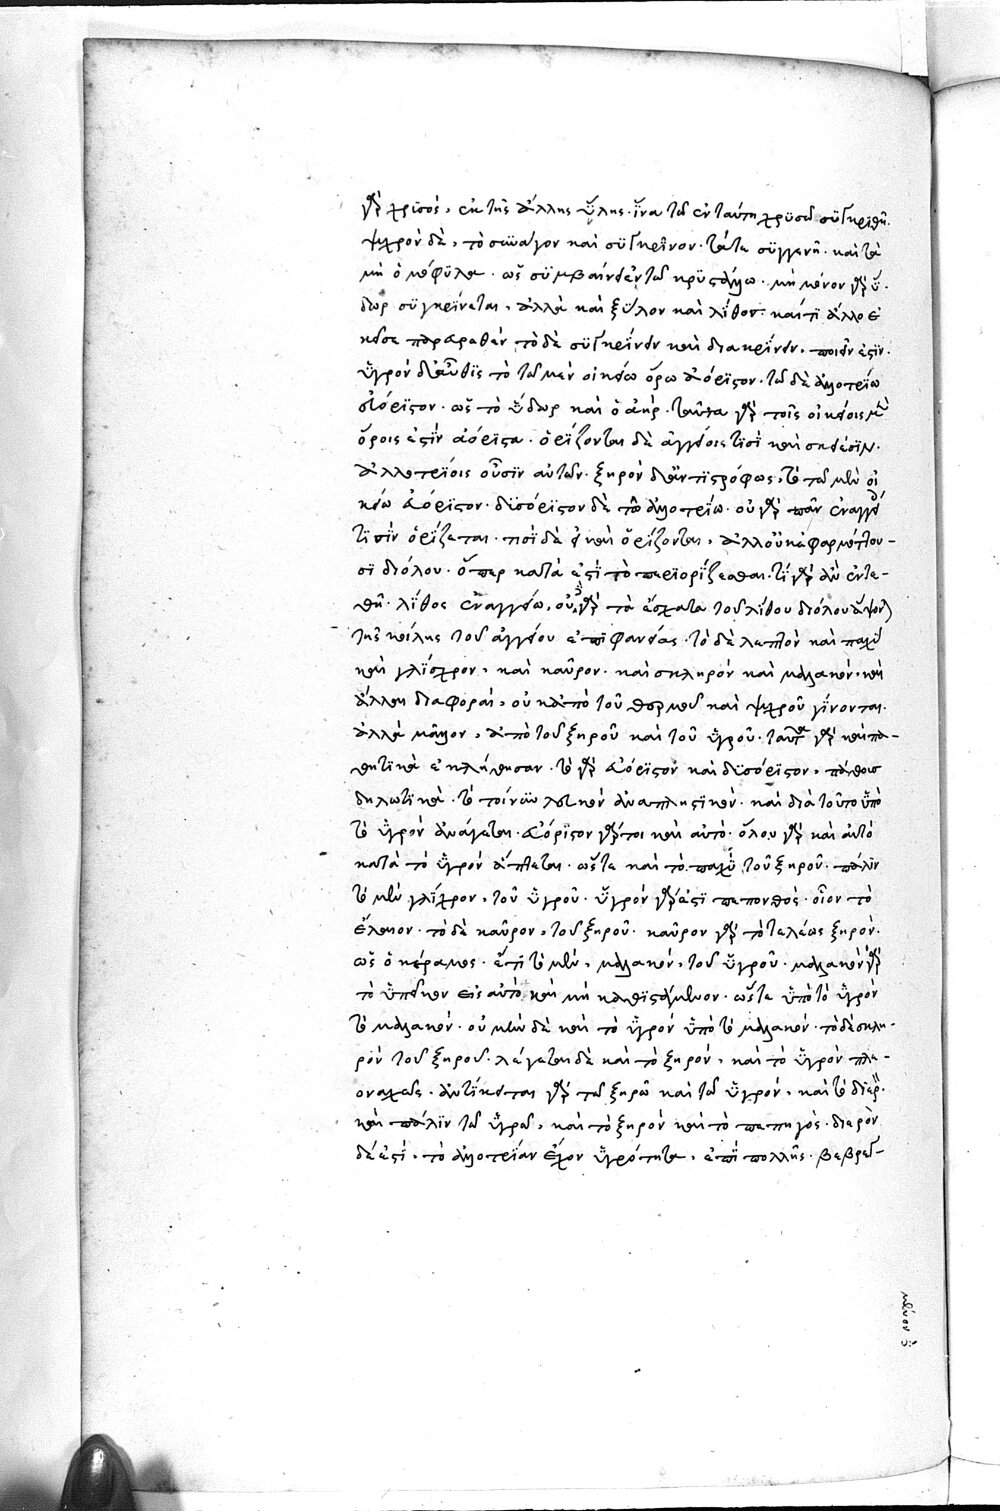 γὰρ χρυσὸς, ἐκ τῆς ἄλλης ὕλης· ἵνα τῶ ἐν ταύτη χρυσῶ συγκριθῆ·
ψυχρὸν δὲ, τὸ συνάγον καὶ συγκρῖνον· τά τε συγγενῆ· καὶ τὰ
μὴ ὁμόφυλα· ὡς συμβαίνει ἐν τῶ κρυστάλλω· μὴ μόνον γὰρ ὕ-
δωρ συγκρίνεται, ἀλλὰ καὶ ξύλον καὶ λίθος· καί τι ἄλλο ἐ
κεῖσε παραρεθέν· τὸ δὲ συγκρίνειν καὶ διακρίνειν, ποιεῖν ἐστιν·
ὑγρὸν δ' αὖθις τὸ τῶ μὲν οἰκείω ὅρω ἀόριστον· τῶ δὲ ἀλλοτρίω
εὐόριστον· ὡς τὸ ὕδωρ καὶ ὁ ἀήρ· ταῦτα γὰρ τοῖς οἰκείοις μὲν
ὅροις ἐστὶν ἀόριστα· ὁρίζονται δὲ ἀγγείοις τισὶ καὶ σκεύεσιν·
ἀλλοτρίοις οὖσιν αὐτῶν· ξηρὸν δ' ἀντιστρόφως, τὸ τῶ μὲν οἰ
κείω ἀόριστον· δυσόριστον δὲ τῶ ἀλλοτρίω· οὐ γὰρ πᾶν ἐν ἀγγείω
τισὶν ὁρίζεται· ποῖ δὲ εἰ καὶ ὁρίζονται, ἀλλ' οὐκ ἐφαρμόττου-
σι διόλου· ὅπερ κατά ἐστι τὸ περιορίζεσθαι· τί γὰρ ἂν ἐντε-
θῆ· λίθος ἐν ἀγγείω, οὐ γὰρ τὰ ἔσχατα τοῦ λίθου διόλου ἅψονται
τῆς κοίλης τοῦ ἀγγείου ἐπιφανείας· τὸ δὲ λεπτὸν καὶ παχὺ
καὶ γλίσχρον, καὶ καῦρον· καὶ σκληρὸν καὶ μαλακὸν, καὶ
ἄλλαι διαφοραὶ, οὐκ ἀπὸ τοῦ θερμοῦ καὶ ψυχροῦ γίνονται·
ἀλλὰ μᾶλλον, ἀπὸ τοῦ ξηροῦ καὶ τοῦ ὑγροῦ· ταῦτα γὰρ καὶ πα-
θητικὰ ἐκλήθησαν· τὸ γὰρ ἀόριστον καὶ δυσόριστον, πάθους
δηλωτικά· τὸ τοίνυν λεπτὸν ἀναπληστικόν· καὶ διὰ τοῦτο ὑπὸ
τὸ ὑγρὸν ἀνάγεται· ἀόριστον γάρ τοι καὶ αὐτό· ὅλου γὰρ καὶ αὐτὸ
κατὰ τὸ ὑγρὸν ἅπτεται· ὥστε καὶ τὸ παχὺ τοῦ ξηροῦ· πάλιν
τὸ μὲν γλίσχρον, τοῦ ὑγροῦ· ὑγρὸν γάρ ἐστι πεπονθὸς· οἷον τὸ
ἔλαιον· τὸ δὲ καῦρον, τοῦ ξηροῦ· καῦρον γὰρ τὸ τελέως ξηρὸν·
ὡς ὁ κέραμος· ἔτι τὸ μὲν, μαλακὸν, τοῦ ὑγροῦ· μαλακὸν γὰρ
τὸ ὑπεῖκον εἰς αὐτὸ καὶ μὴ καθιστάμενον· ὥστε ὑπὸ τὸ ὑγρὸν
τὸ μαλακόν· οὐ μὲν δὲ καὶ τὸ ὑγρὸν ὑπὸ τὸ μαλακόν· τὸ δὲ σκλη-
ρὸν τοῦ ξηροῦ· λέγεται δὲ καὶ τὸ ξηρὸν, καὶ τὸ ὑγρὸν πλε-
οναχῶς· ἀντίκειται γὰρ τῶ ξηρῶ καὶ τῶ ὑγρὸν, καὶ τὸ διερόν·
καὶ πάλιν τῶ ὑγρῶ, καὶ τὸ ξηρὸν καὶ τὸ πεπηγὸς· διερὸν
δέ ἐστι, τὸ ἀλλοτρίαν ἔχον ὑγρότητα, ἐπιπολῆς· βεβρεγ-
μένον δὲ